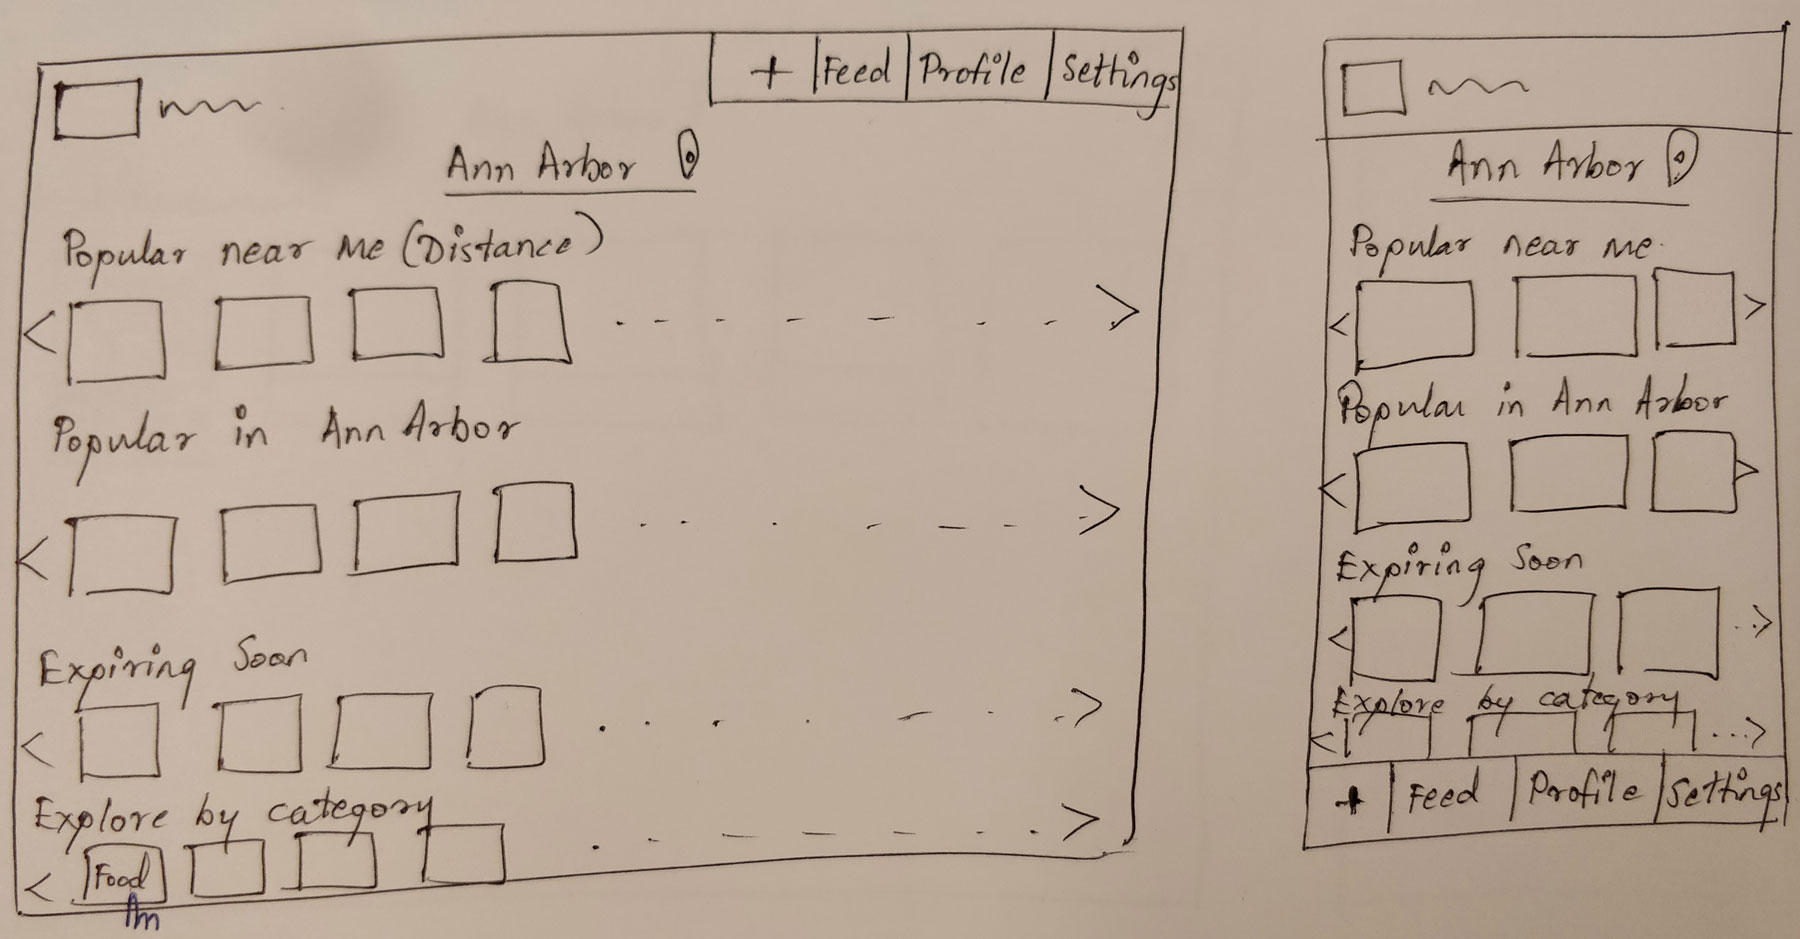 + Feed Profile Settings
Ann Arbor
Popular near Me (Distance)
Popular in Ann Arbor
Expiring Soon
Explore by category
Food
Ann Arbor
Popular near me
Popular in Ann Arbor
Expiring Soon
Explore by category
+ Feed Profile Settings